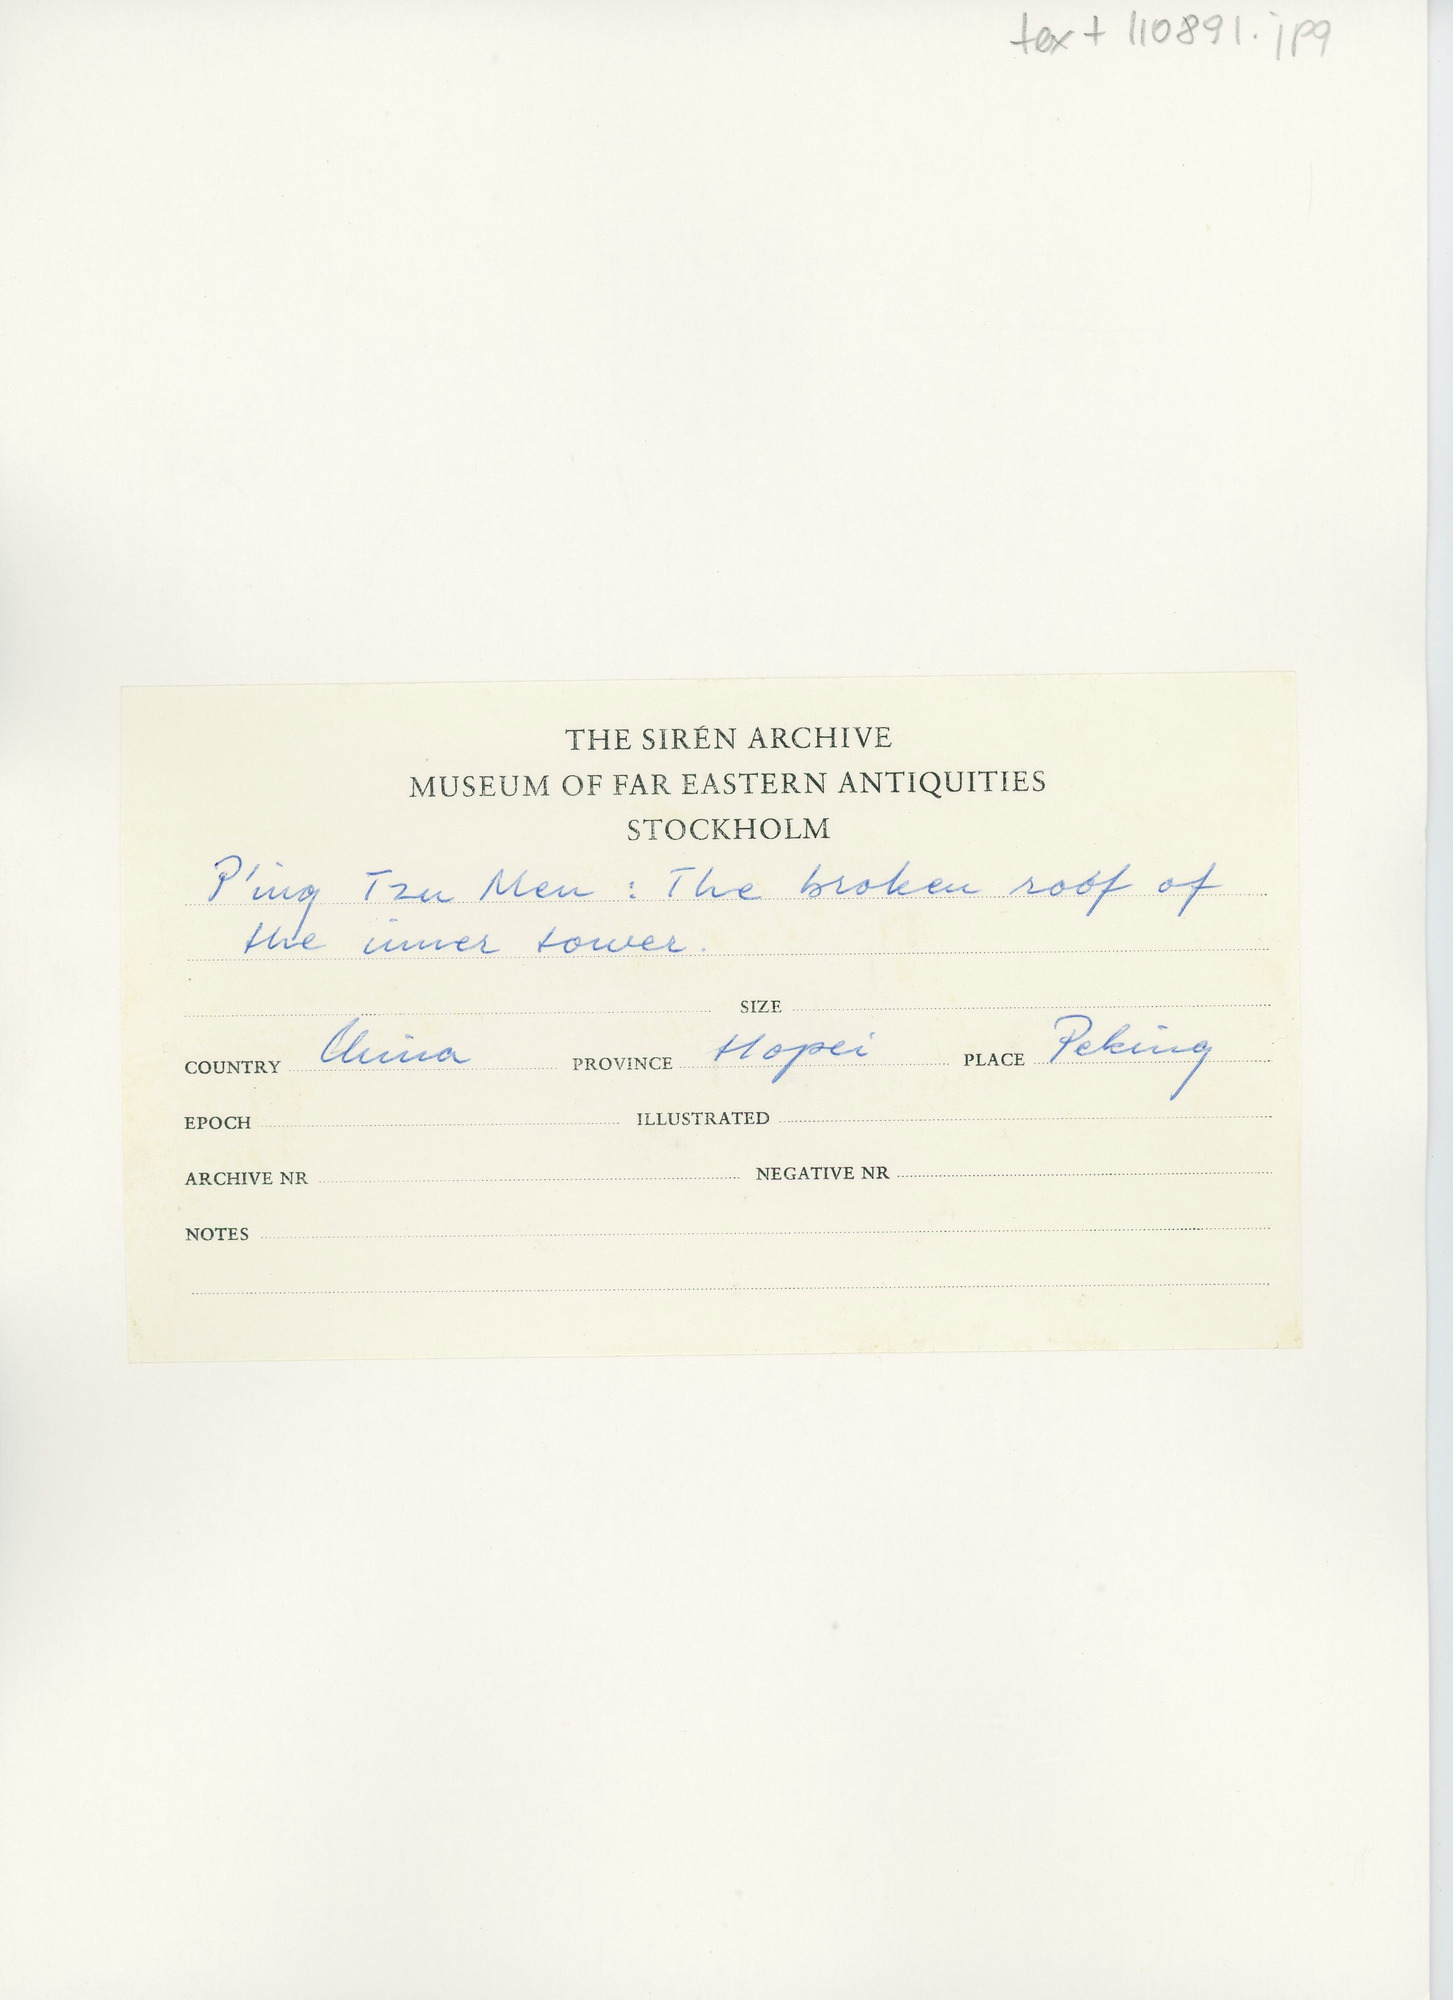 text 110891.jpg
THE SIRÉN ARCHIVE
MUSEUM OF FAR EASTERN ANTIQUITIES
STOCKHOLM
P'ing Tzu Men : The broken roof of
the inner tower.
SIZE
COUNTRY China PROVINCE Hopei PLACE Peking
EPOCH ILLUSTRATED
ARCHIVE NR NEGATIVE NR
NOTES